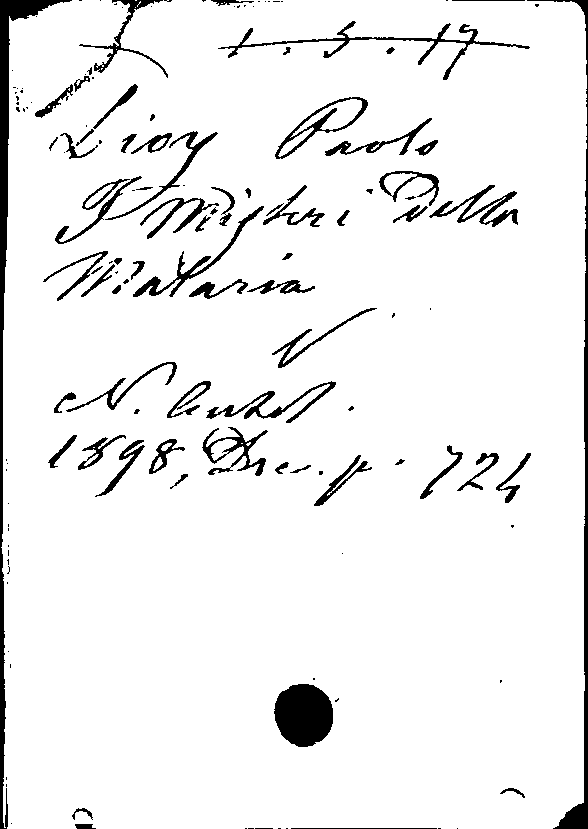 1.5.17
Lioy Paolo
I Misteri Della
Malaria
V
N. Antol.
1898, Dic. p. 724